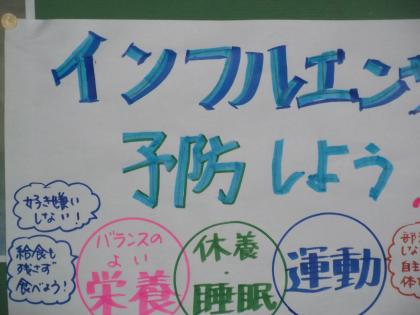 インフルエン
予防しよう
好き嫌い
しない!
給食も
残さず
食べよう!
バランスの
よい
栄養
休養
・
睡眠
運動
部
しな
自主
体